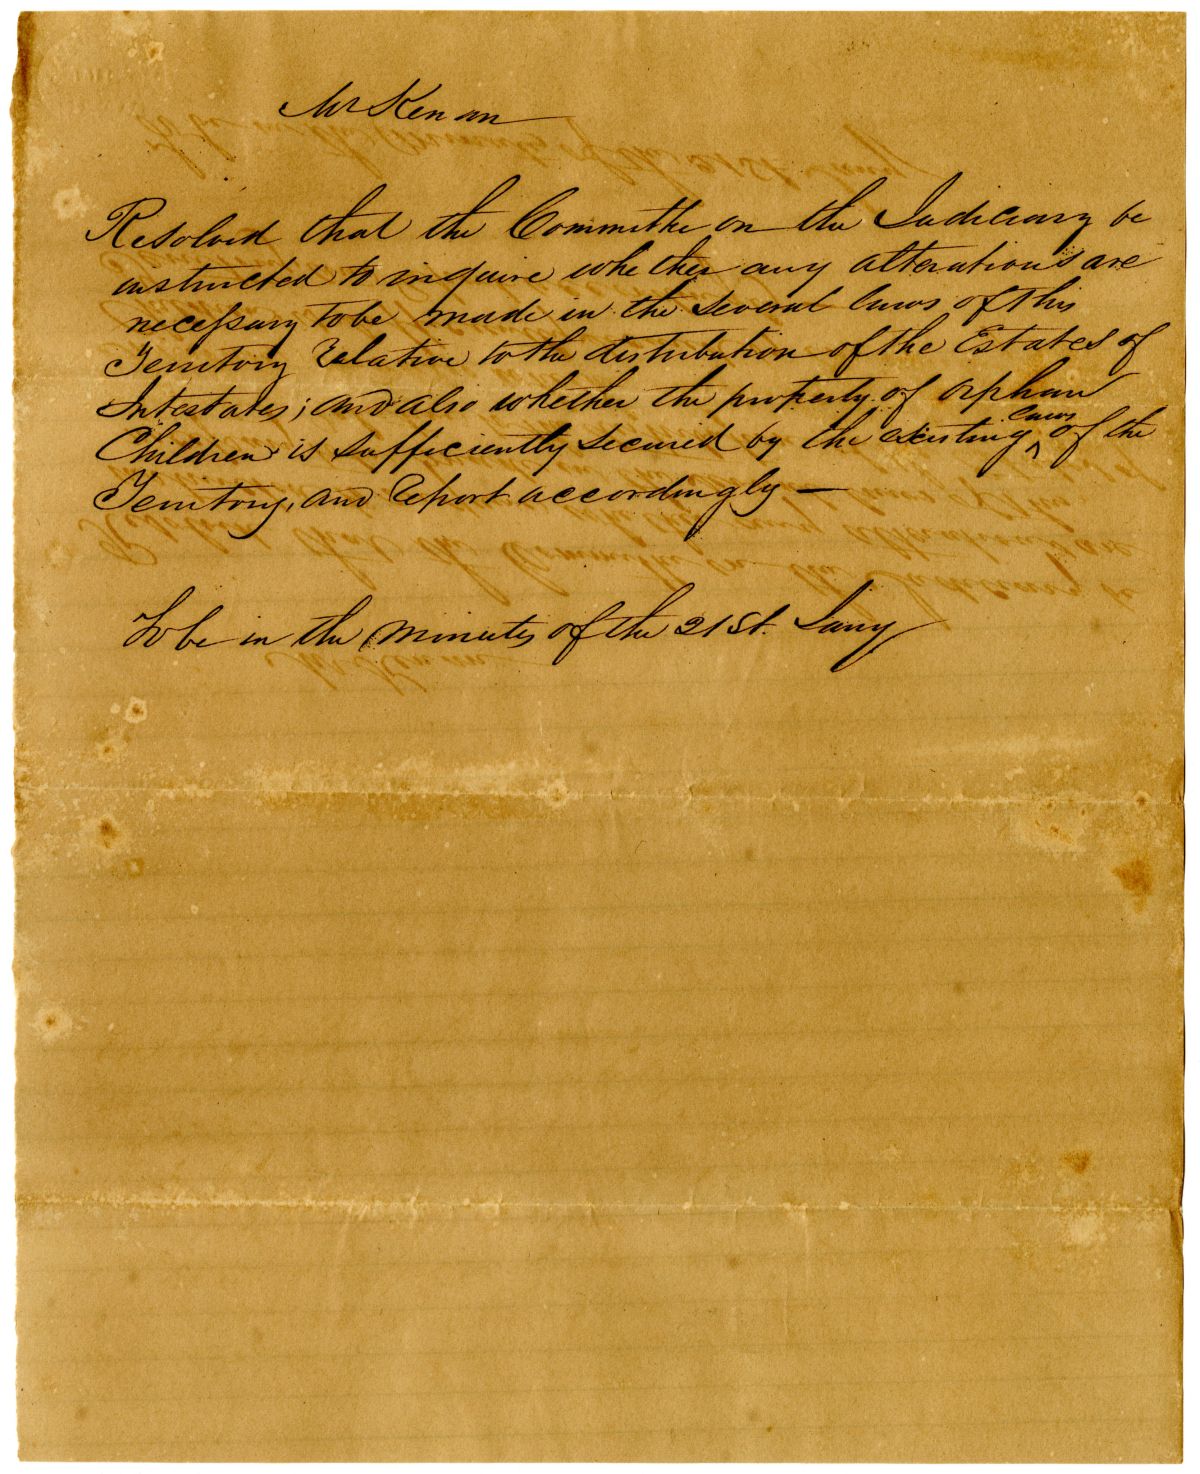 Mr Kenan
Resolved that the Committee on the Judiciary be
instructed to inquire whether any alterations are
necessary to be made in the several laws of this
Territory relative to the distribution of the Estates of
Intestates; and also whether the property of orphan
Children is sufficiently secured by the existing laws of the
Territory, and report accordingly —
To be in the minutes of the 21st. Jany